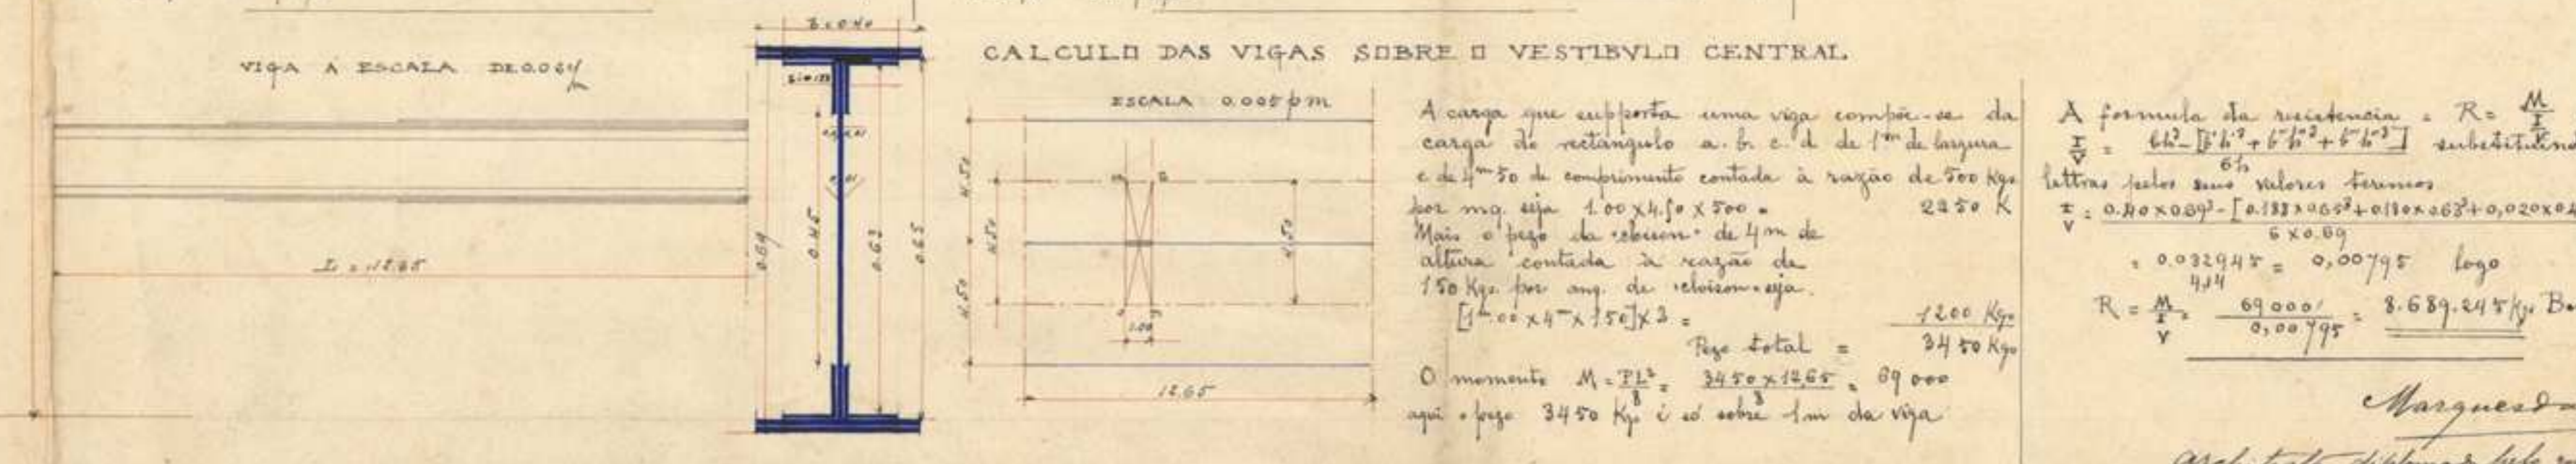 VIGA A ESCALA DE 0.04 p/m
B = 0.40
0.69
0.45
0.63
0.65
L = 12.65
CALCULO DAS VIGAS SOBRE O VESTIBVLO CENTRAL
ESCALA 0.005 p m
4.50
4.50
4.50
4.50
1.00
12.65
A carga que supporta uma viga compõe-se da
carga do rectangulo a. b. c. d de 1m de largura
e de 4m50 de comprimento contada à razão de 500 Kgs
por mq. seja 1.00 x 4.50 x 500 = 2250 K
Mais o pezo da "cloison" de 4m de
altura contada à razão de
150 Kgs. por mq. de "cloison" seja.
[1m.00 x 4m x 150] x 2 = 1200 Kgs
Pezo total = 3450 Kgs
O momento M = PL²/8 = 3450 x 12,65/8 = 69 000
aqui o pezo 3450 Kgs é só sobre 1m da viga
A formula da resistencia = R = M/(I/V)
I/V = bh³-[b'h'³+b"h"³+b"'h"'³]/6h substituindo
lettras pelos seus valores teremos
I/V = 0.40x0.69³-[0.188x0.65³+0.180x0.63³+0,020x0.4
6 x 0.69
= 0.032945/4,14 = 0,00795 logo
R = M/(I/V) = 69000/0,00795 = 8.689.245 Kgs
Marques da
architecto diplomado pelo